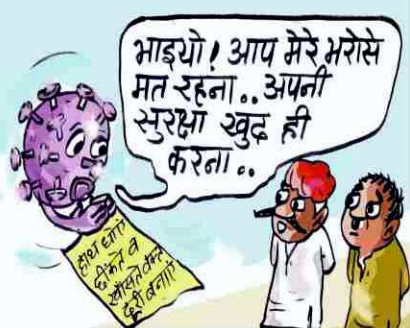 भाइयो! आप मेरे भरोसे
मत रहना.. अपनी
सुरक्षा खुद ही
करना..
हाथ धोएं
छींकते व
खाँसते वक्त
दूरी बनाएं